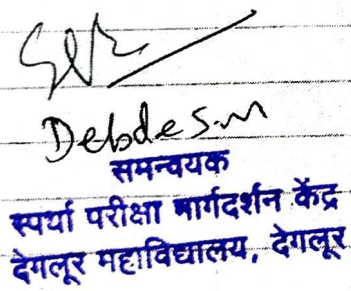 Debde S.M
समन्वयक
स्पर्धा परीक्षा मार्गदर्शन केंद्र
देगलूर महाविद्यालय, देगलूर